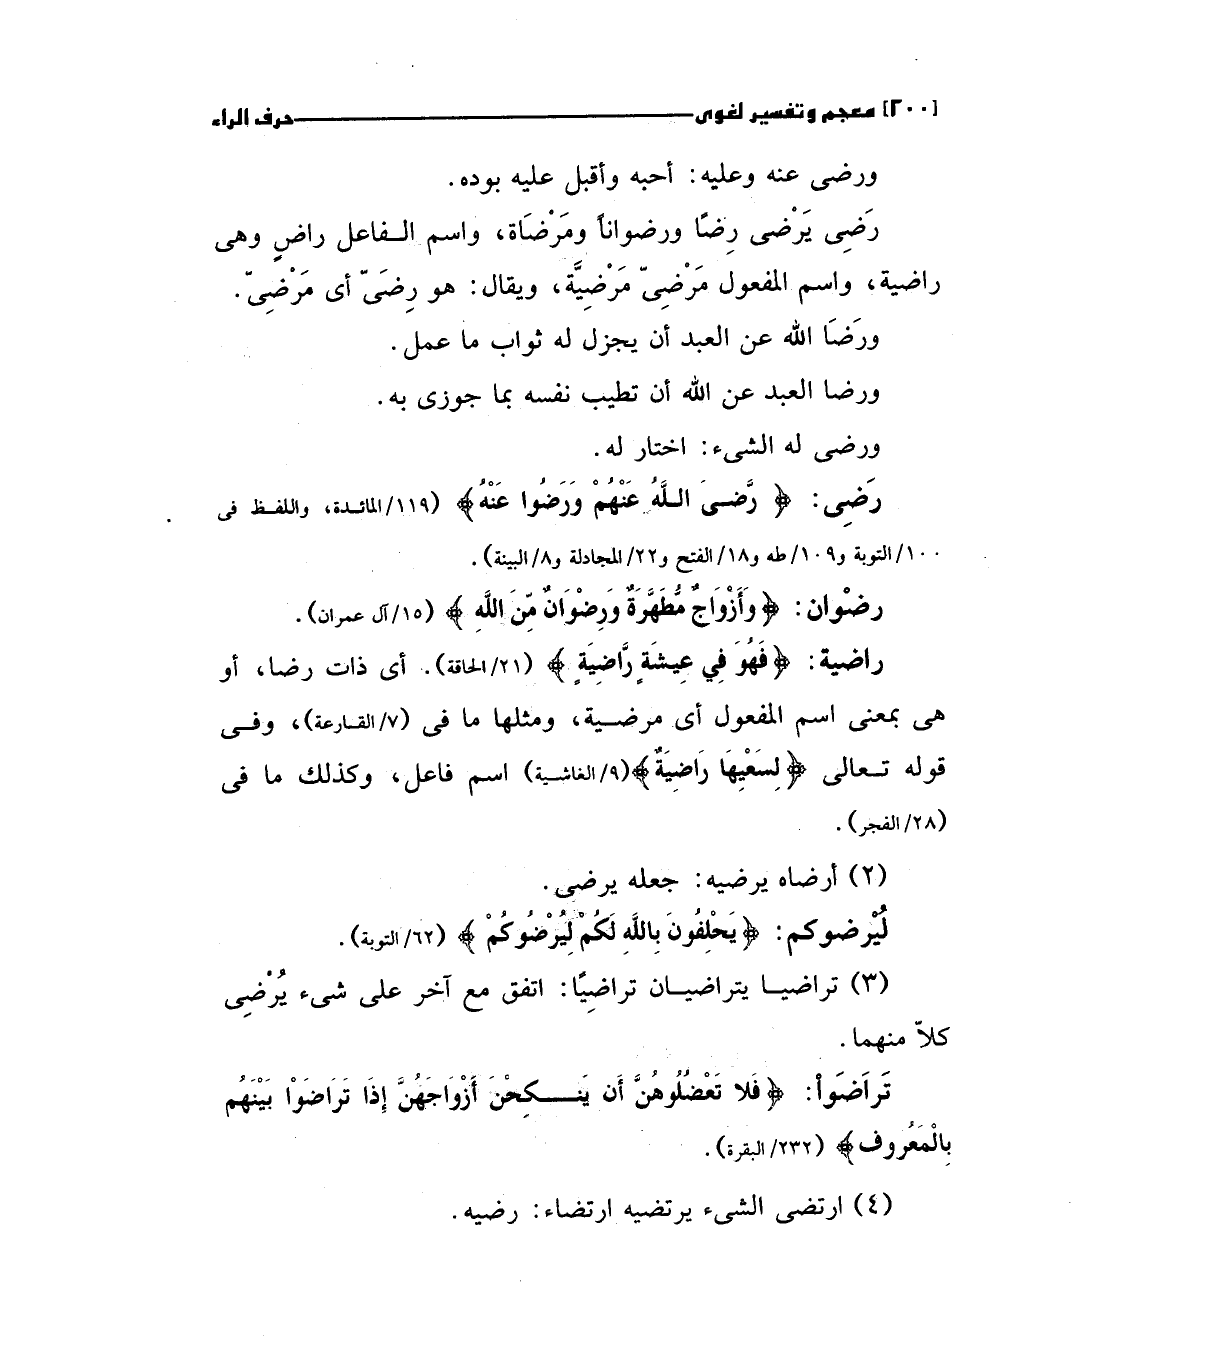 [٢٠٠] معجم وتفسير لغوى حرف الراء
ورضى عنه وعليه: أحبه وأقبل عليه بوده.
رَضِى يَرْضى رِضًا ورضواناً ومَرْضَاة، واسم الفاعل راضٍ وهى
راضية، واسم المفعول مَرْضِىّ مَرْضِيَّة، ويقال: هو رِضَىّ أى مَرْضِىّ.
ورَضَا الله عن العبد أن يجزل له ثواب ما عمل.
ورضا العبد عن الله أن تطيب نفسه بما جوزى به.
ورضى له الشىء: اختار له.
رَضِى: ﴿ رَّضِىَ اللَّهُ عَنْهُمْ وَرَضُوا عَنْهُ﴾ (١١٩/المائدة، واللفظ فى
١٠٠/التوبة و١٠٩/طه و١٨/الفتح و٢٢/المجادلة و٨/البينة).
رضْوان: ﴿وَأَزْوَاجٌ مُّطَهَّرَةٌ وَرِضْوَانٌ مِّنَ اللَّهِ ﴾ (١٥/آل عمران).
راضية: ﴿فَهُوَ فِي عِيشَةٍ رَّاضِيَةٍ ﴾ (٢١/الحاقة). أى ذات رضا، أو
هى بمعنى اسم المفعول أى مرضية، ومثلها ما فى (٧/القارعة)، وفى
قوله تعالى ﴿لِسَعْيِهَا رَاضِيَةٌ﴾(٩/الغاشية) اسم فاعل، وكذلك ما فى
(٢٨/الفجر).
(٢) أرضاه يرضيه: جعله يرضى.
لُيْرضوكم: ﴿يَحْلِفُونَ بِاللَّهِ لَكُمْ لِيُرْضُوكُمْ ﴾ (٦٢/التوبة).
(٣) تراضيا يتراضيان تراضِيًا: اتفق مع آخر على شىء يُرْضِى
كلاّ منهما.
تَراَضَواْ: ﴿فَلا تَعْضُلُوهُنَّ أَن يَنكِحْنَ أَزْوَاجَهُنَّ إِذَا تَرَاضَوْا بَيْنَهُم
بِالْمَعْرُوف﴾ (٢٣٢/البقرة).
(٤) ارتضى الشىء يرتضيه ارتضاء: رضيه.